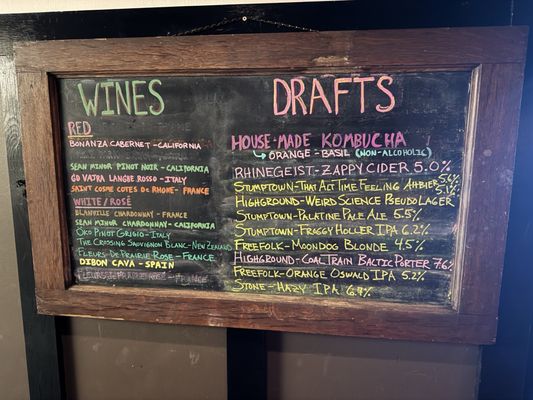 WINES
RED
BONANZA CABERNET - CALIFORNIA
SEAN MINOR PINOT NOIR - CALIFORNIA
GD VAJRA LANGHE ROSSO - ITALY
SAINT COSME COTES DE RHONE - FRANCE
WHITE/ROSÉ
BLANVILLE CHARDONNAY - FRANCE
SEAN MINOR CHARDONNAY - CALIFORNIA
PINOT GRIGIO - ITALY
THE CROSSING SAUVIGNON BLANC - NEW ZEALAND
FLEURS DE PRAIRIE ROSE - FRANCE
DIBON CAVA - SPAIN
DRAFTS
HOUSE-MADE KOMBUCHA
ORANGE - BASIL (NON-ALCOHOLIC)
RHINEGEIST - ZAPPY CIDER 5.0%
STUMPTOWN - THAT ALT TIME FEELING ALTBIER 5.6%
HIGHGROUND - WEIRD SCIENCE PSEUDO LAGER 5.1%
STUMPTOWN - PALATINE PALE ALE 5.5%
STUMPTOWN - FROGGY HOLLER IPA 6.2%
FREEFOLK - MOONDOG BLONDE 4.5%
HIGHGROUND - COAL TRAIN BALTIC PORTER 7.6%
FREEFOLK - ORANGE OSWALD IPA 5.2%
STONE - HAZY IPA 6.7%